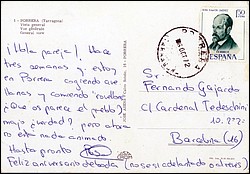 1 - PORRERA (Tarragona)
Vista general
Vue générale
General view
¡Hola pareja! Hace
tres semanas y estoy
en Porrera cogiendo ave-
llanas y comiendo
¿Qué os parece el pueblo?
majo ¿verdad? pero ahora
no está nada animado
Hasta pronto
Feliz aniversario de boda (no se si adelantado o atrasado)
Sr.
Fernando Gajardo
C/ Cardenal Tedeschini
Barcelona (16)
1,50
PTA
ESPAÑA
PORRERA